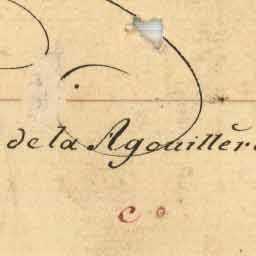 de la Agouillère
C o